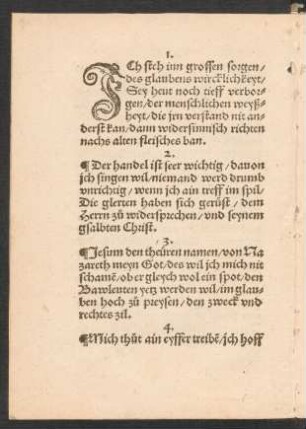 1.
ICh steh inn grossen sorgen/
des glaubens wircklichkeyt/
Sey heut noch tieff verbor-
gen/der menschlichen weyß-
heyt/die jrn verstand nit an-
derst kan/dann widersinnisch richten
nachs alten fleisches ban.
2.
¶Der handel ist seer wichtig/dauon
jch singen wil/niemand werd drumb
vnrichtig/wenn jch ain treff im spil/
Die glerten haben sich gerüst/dem
Herrn zů widersprechen/vnd seynem
gsalbten Christ.
3.
¶Jesum den theüren namen/von Na
zareth meyn Got/des wil jch mich nit
schamē/ob er gleych wol ein spot/den
Bawleuten yetz werden wil/im glau-
ben hoch zů preysen/den zweck vnd
rechtes zil.
4.
¶Mich thůt ain eyffer treibē/jch hoff